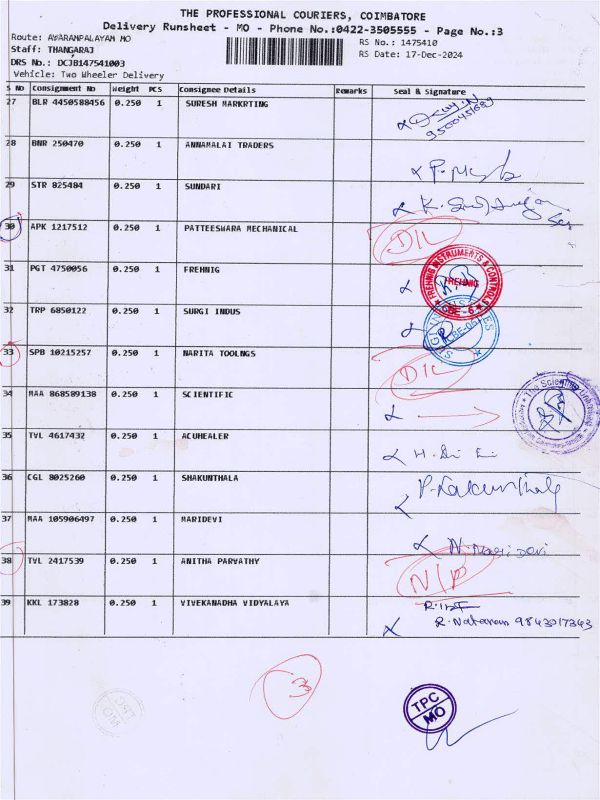 THE PROFESSIONAL COURIERS, COIMBATORE
Delivery Runsheet - MO - Phone No.:0422-3505555 - Page No.:3
Route: AVARAMPALAYAM MO RS No.: 1475410
Staff: THANGARAJ RS Date: 17-Dec-2024
DRS No.: DCJB147541003
Vehicle: Two Wheeler Delivery
S No Consignment No Weight PCS Consignee Details Remarks Seal & Signature
27 BLR 4450588456 0.250 1 SURESH MARKRTING
28 BNR 250470 0.250 1 ANNAMALAI TRADERS
29 STR 825484 0.250 1 SUNDARI
30 APK 1217512 0.250 1 PATTEESWARA MECHANICAL D/L
31 PGT 4750056 0.250 1 FREHNIG FREHNIG INSTRUMENTS & CONTROLS FREHNIG CBE-6
32 TRP 6850122 0.250 1 SURGI INDUS
33 SPB 10215257 0.250 1 NARITA TOOLNGS D/L
34 MAA 868589138 0.250 1 SCIENTIFIC The Scientific
35 TVL 4617432 0.250 1 ACUHEALER
36 CGL 8025260 0.250 1 SHAKUNTHALA
37 MAA 105906497 0.250 1 MARIDEVI N. Mari Devi
38 TVL 2417539 0.250 1 ANITHA PARVATHY N/P
39 KKL 173828 0.250 1 VIVEKANADHA VIDYALAYA
TPC
MO